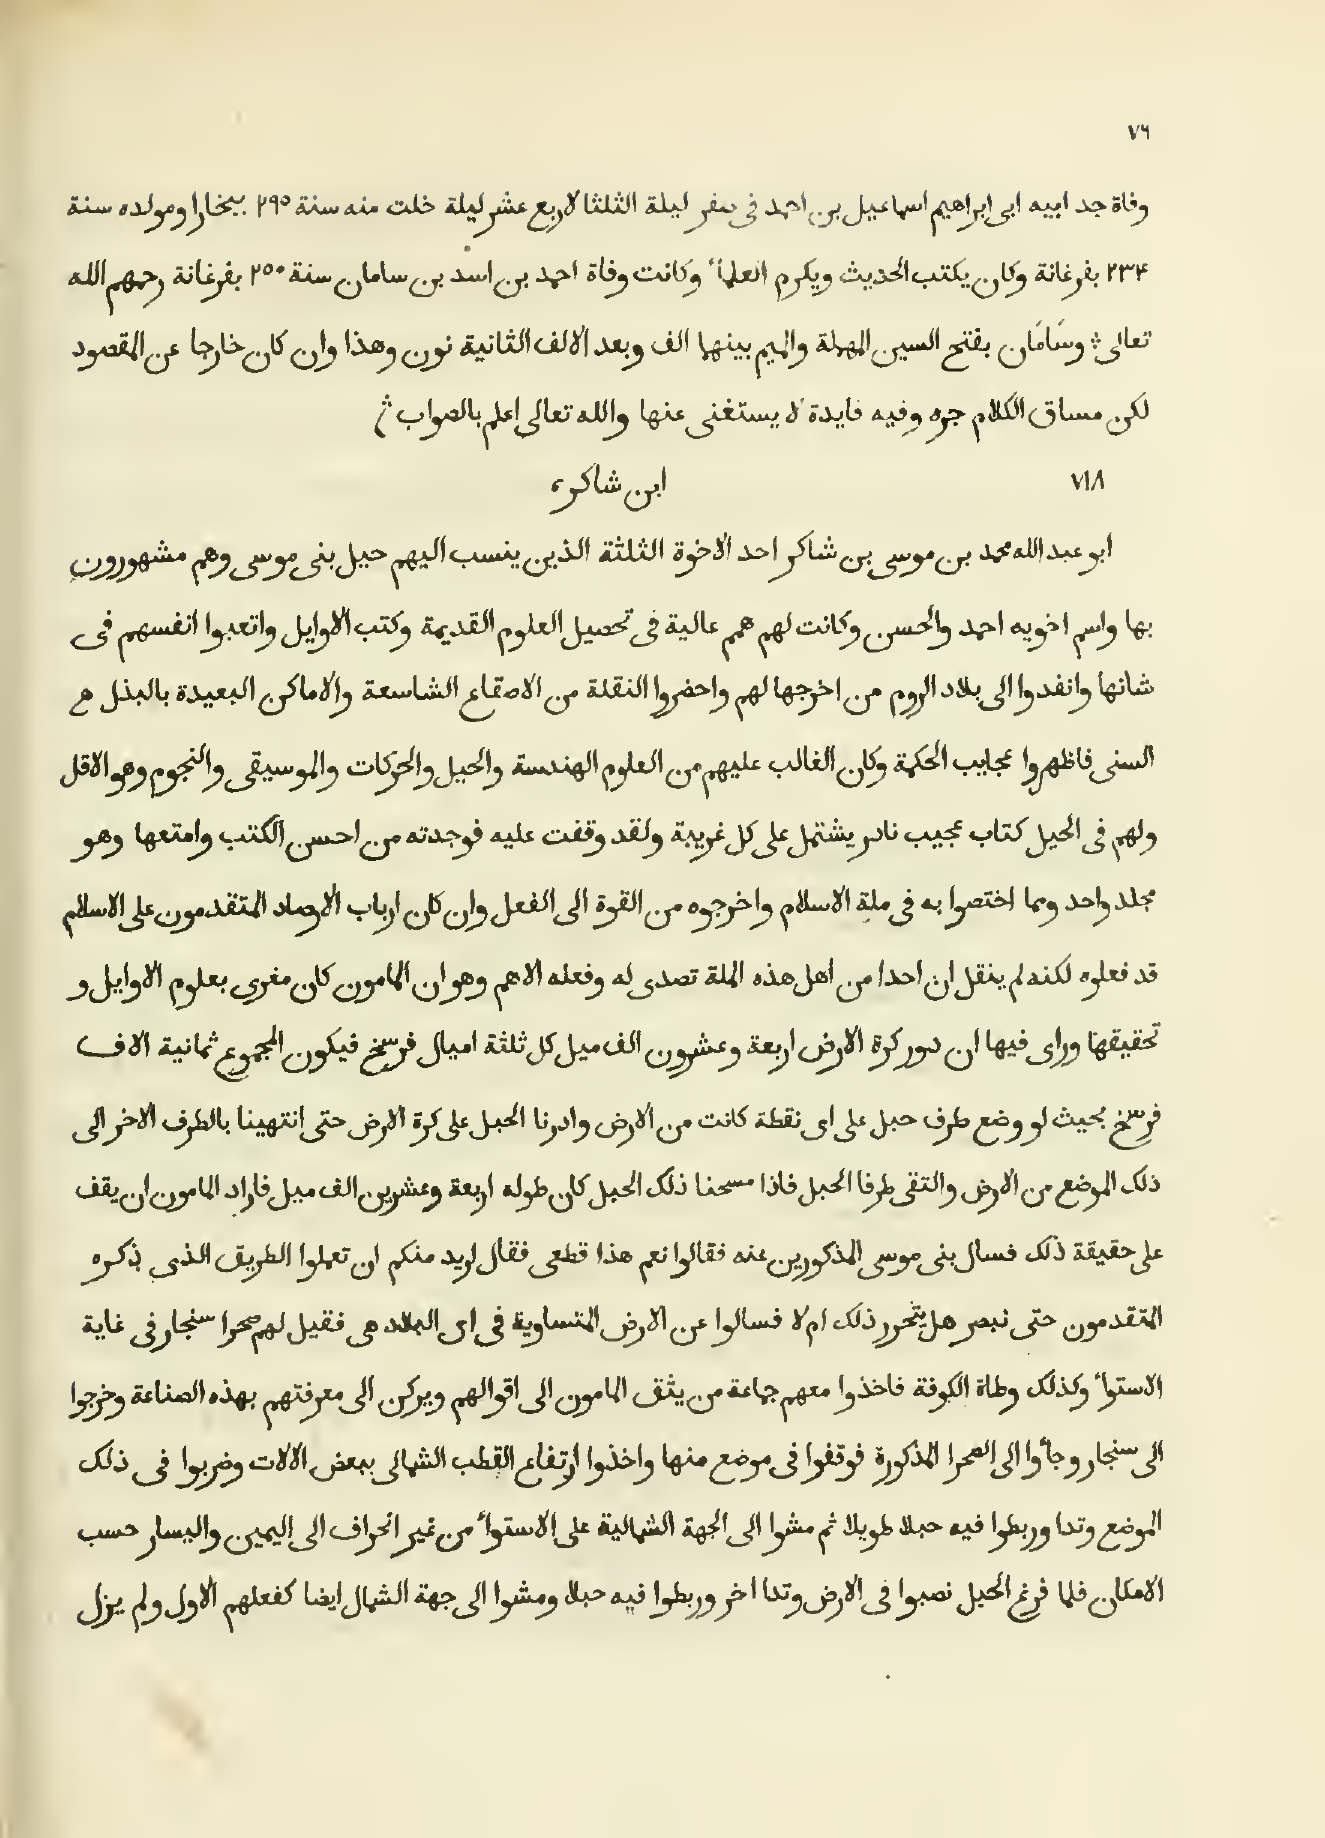 ٧٦
وفاة جد ابيه ابى ابراهيم اسماعيل بن احمد فى صفر ليلة الثلثا لاربع عشر ليلة خلت منه سنة ٢٩٥ ببخارا ومولده سنة
٢٣٤ بفرغانة وكان يكتب الحديث ويكرم العلمآ وكانت وفاة احمد بن اسد بن سامان سنة ٢٥٠ بفرغانة رحمهم الله
تعالى ؞ وسَامَان بفتح السين المهملة والميم بينهما الف وبعد الالف الثانية نون وهذا وان كان خارجا عن المقصود
لكن مساق الكلام جره وفيه فايدة لا يستغنى عنها والله تعالى اعلم بالصواب ؞
٧١٨ ابن شاكر،
ابو عبد الله محمد بن موسى بن شاكر احد الاخوة الثلثة الذين ينسب اليهم حيل بنى موسى وهم مشهورون
بها واسم اخويه احمد والحسن وكانت لهم همم عالية فى تحصيل العلوم القديمة وكتب الاوايل واتعبوا انفسهم فى
شانها وانفدوا الى بلاد الروم من اخرجها لهم واحضروا النقلة من الاصقاع الشاسعة والاماكن البعيدة بالبذل
السنى فاظهروا عجايب الحكمة وكان الغالب عليهم من العلوم الهندسة والحيل والحركات والموسيقى والنجوم وهو الاقل
ولهم فى الحيل كتاب عجيب نادر يشتمل على كل غريبة ولقد وقفت عليه فوجدته من احسن الكتب وامتعها وهو
مجلد واحد ومما اختصوا به فى ملة الاسلام واخرجوه من القوة الى الفعل وان كان ارباب الارصاد المتقدمون على الاسلام
قد فعلوه لكنه لم ينقل ان احدا من اهل هذه الملة تصدى له وفعله الا هم وهو ان المامون كان مغرى بعلوم الاوايل و
تحقيقها وراى فيها ان دور كرة الارض اربعة وعشرون الف ميل كل ثلثة اميال فرسخ فيكون المجموع ثمانية الاف
فرسخ بحيث لو وضع طرف حبل على اى نقطة كانت من الارض وادرنا الحبل على كرة الارض حتى انتهينا بالطرف الاخر الى
ذلك الموضع من الارض والتقى طرفا الحبل فاذا مسحنا ذلك الحبل كان طوله اربعة وعشرين الف ميل فاراد المامون ان يقف
على حقيقة ذلك فسال بنى موسى المذكورين عنه فقالوا نعم هذا قطعى فقال اريد منكم ان تعملوا الطريق الذى ذكره
المتقدمون حتى نبصر هل يتحرر ذلك ام لا فسالوا عن الارض المتساوية فى اى البلاد هى فقيل لهم صحرا سنجار فى غاية
الاستوآ وكذلك وطاة الكوفة فاخذوا معهم جماعة من يثق المامون الى اقوالهم ويركن الى معرفتهم بهذه الصناعة وخرجوا
الى سنجار وجآوا الى الصحرا المذكورة فوقفوا فى موضع منها واخذوا ارتفاع القطب الشمالى ببعض الالات وضربوا فى ذلك
الموضع وتدا وربطوا فيه حبلا طويلا ثم مشوا الى الجهة الشمالية على الاستوآ من غير انحراف الى اليمين واليسار حسب
الامكان فلما فرغ الحبل نصبوا فى الارض وتدا اخر وربطوا فيه حبلا ومشوا الى جهة الشمال ايضا كفعلهم الاول ولم يزل